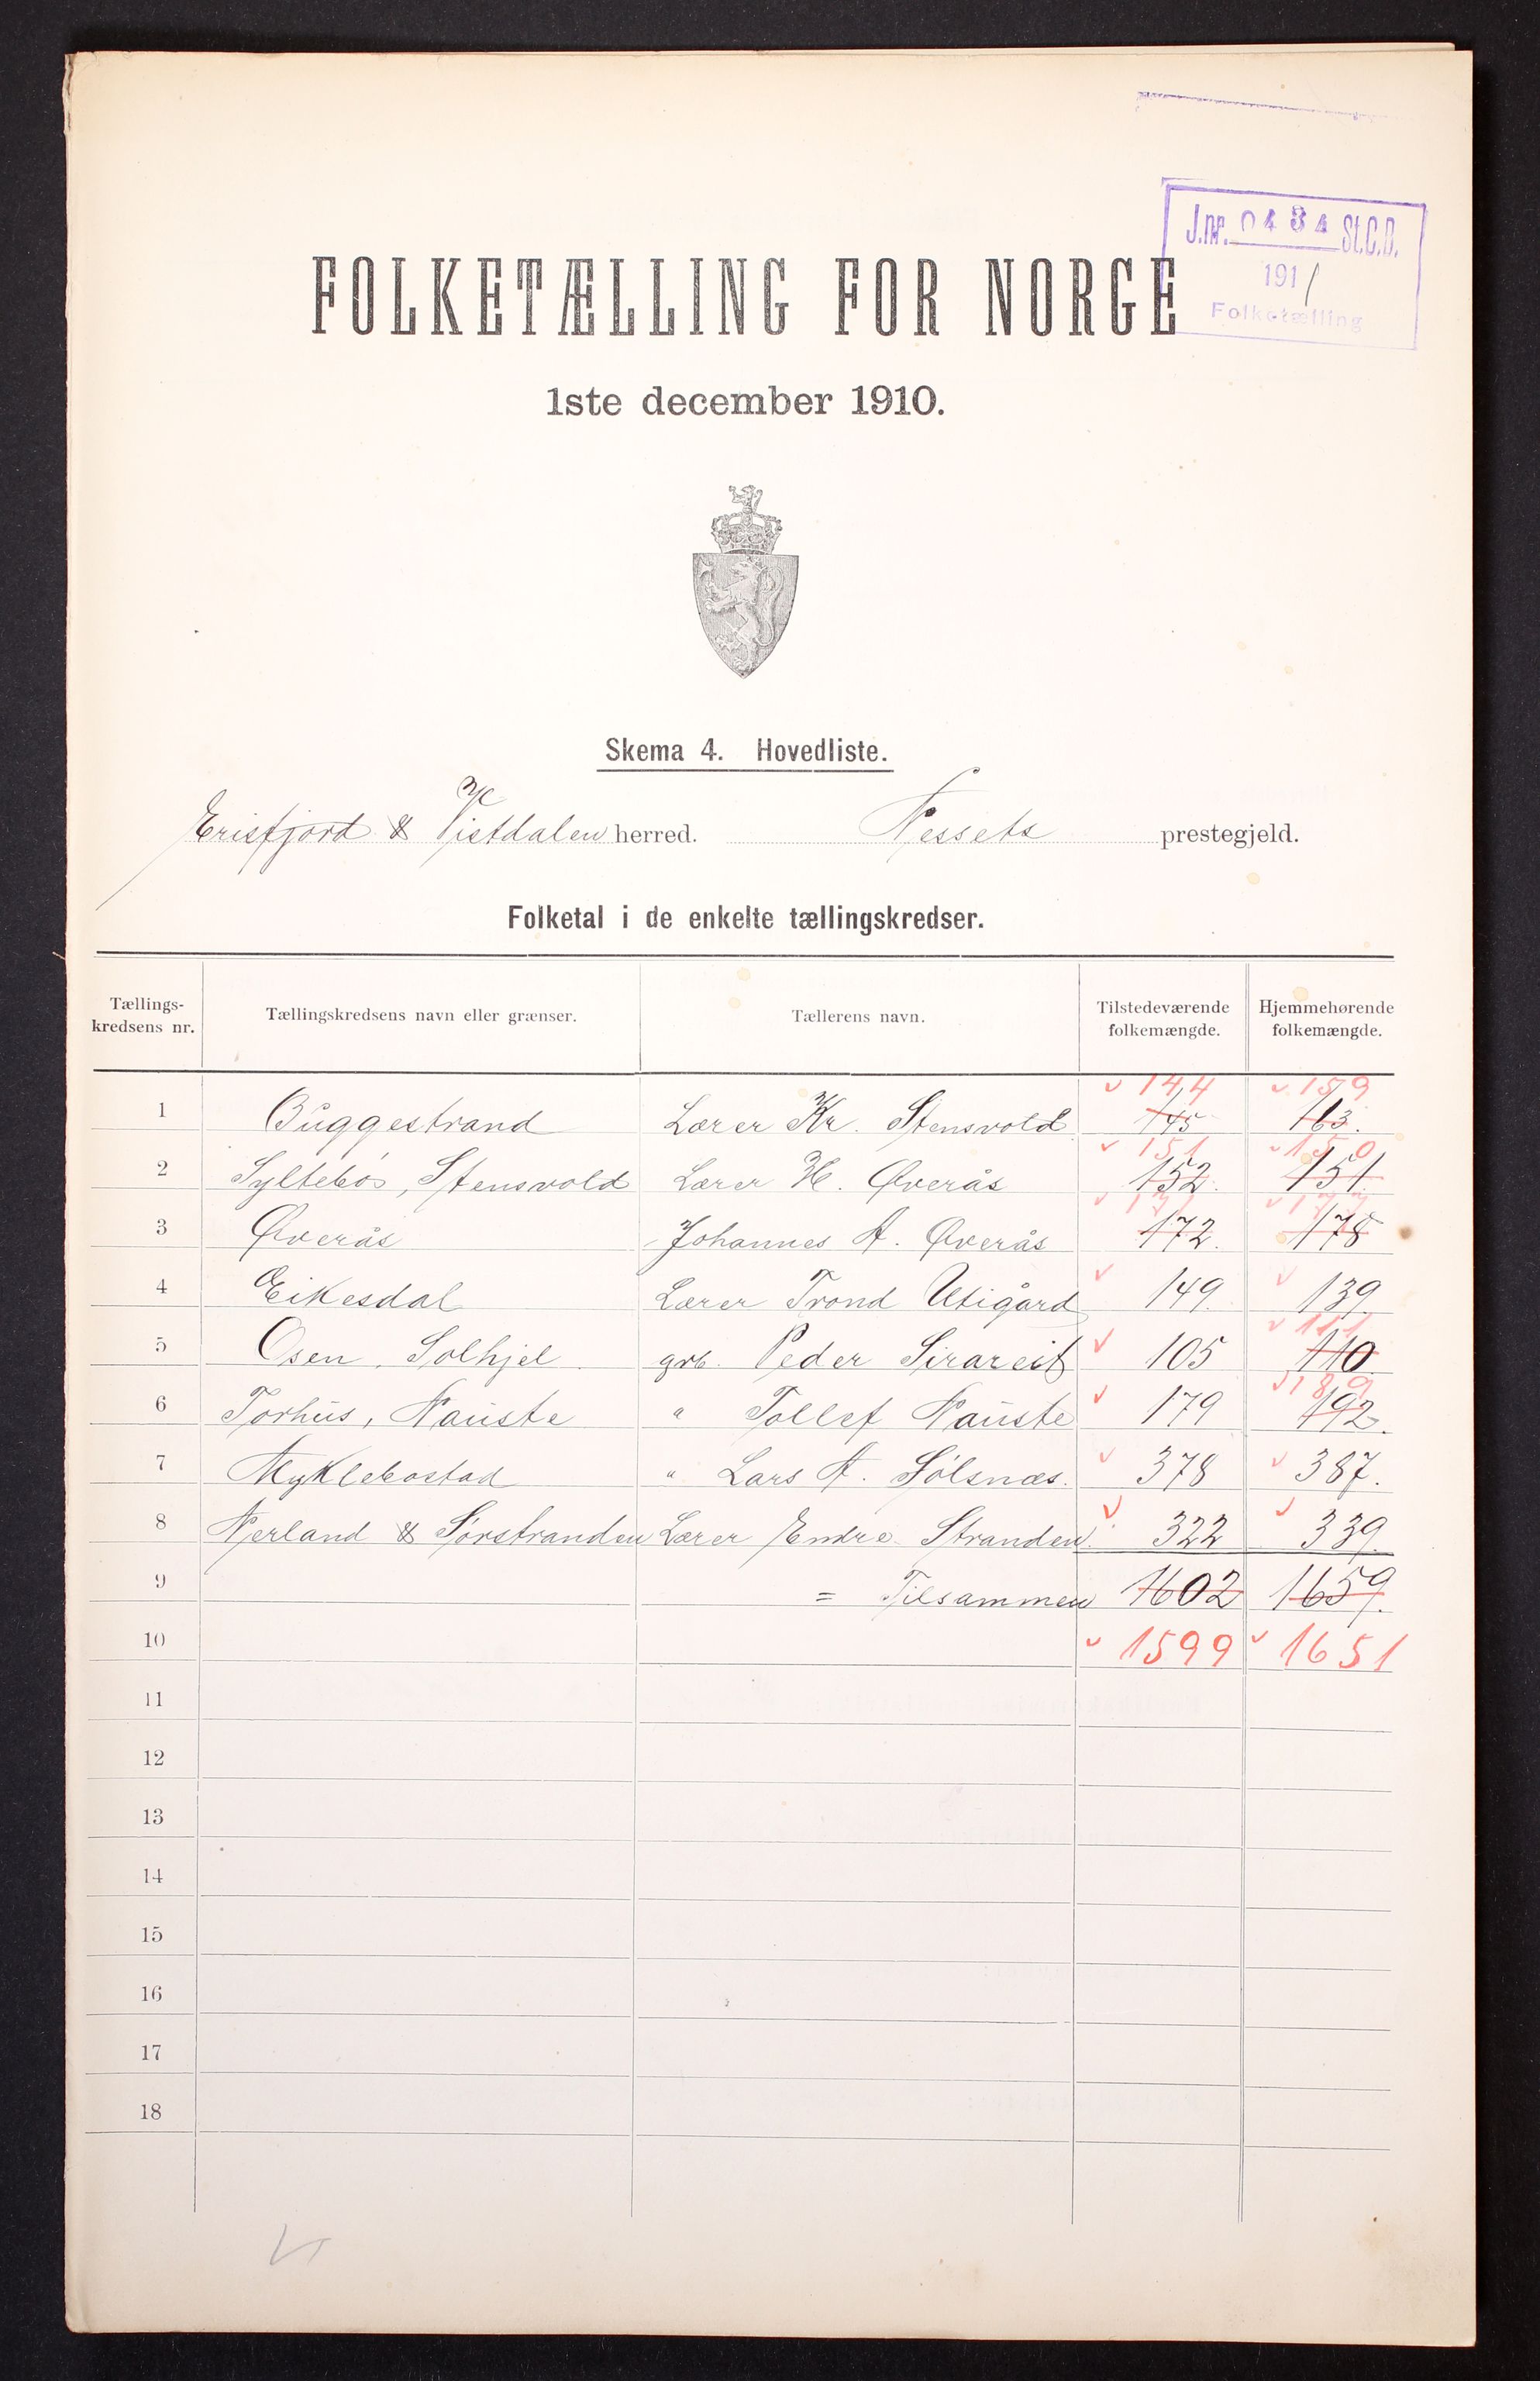 J.nr. 0434 St.C.B.
1911
Folketælling
FOLKETÆLLING FOR NORGE
1ste december 1910.
Skema 4. Hovedliste.
Erisfjord & Vistdalen herred. Nessets prestegjeld.
Folketal i de enkelte tællingskredser.
Tællings-kredsens nr. Tællingskredsens navn eller grænser. Tællerens navn. Tilstedeværende folkemængde. Hjemmehørende folkemængde.
144 159
1 Buggestrand Lærer Kr. Stensvold 145 163.
151 150
2 Syltebøs, Stensvold Lærer H. Øverås 152. 151.
171 177
3 Øverås Johannes A. Øverås 172. 178
4 Eikesdal Lærer Trond Utigård 149. 139.
111
5 Osen, Solhjel. grb. Peder Sirareit 105 110
189
6 Torhus, Nauste " Tollef Nauste 179 192.
7 Myklebostad " Lars A. Sølsnæs. 378 387.
8 Nerland & Sørstranden Lærer Endre Stranden. 322 339.
9 = Tilsammen 1602 1659.
10 1599 1651
11
12
13
14
15
16
17
18